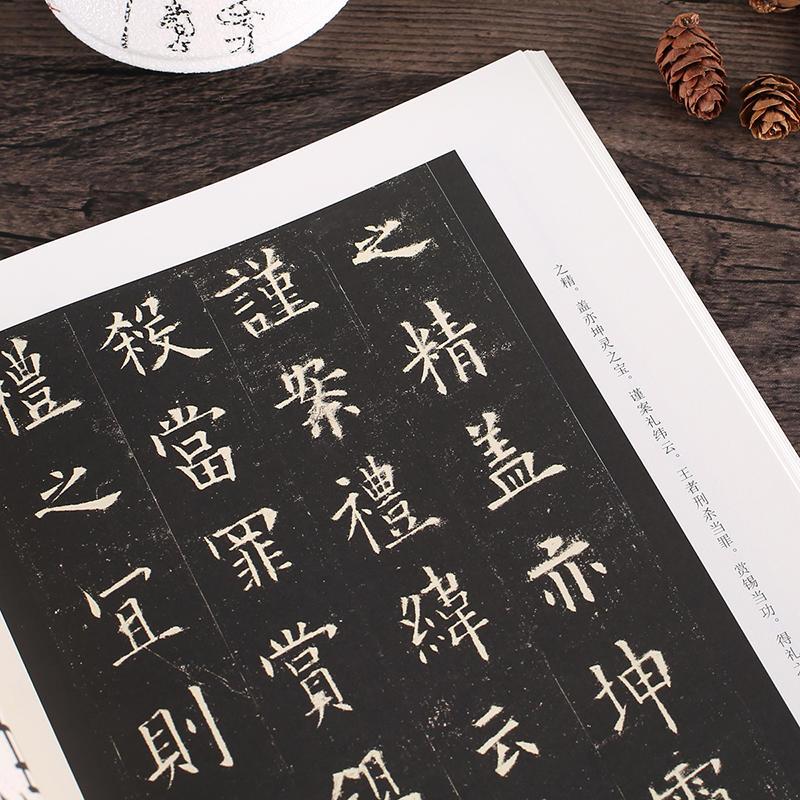 之精盖亦坤
謹案禮緯云
殺當罪賞錫
禮之冝則
之精。盖亦坤灵之宝。谨案礼纬云。王者刑杀当罪。赏锡当功。得礼之